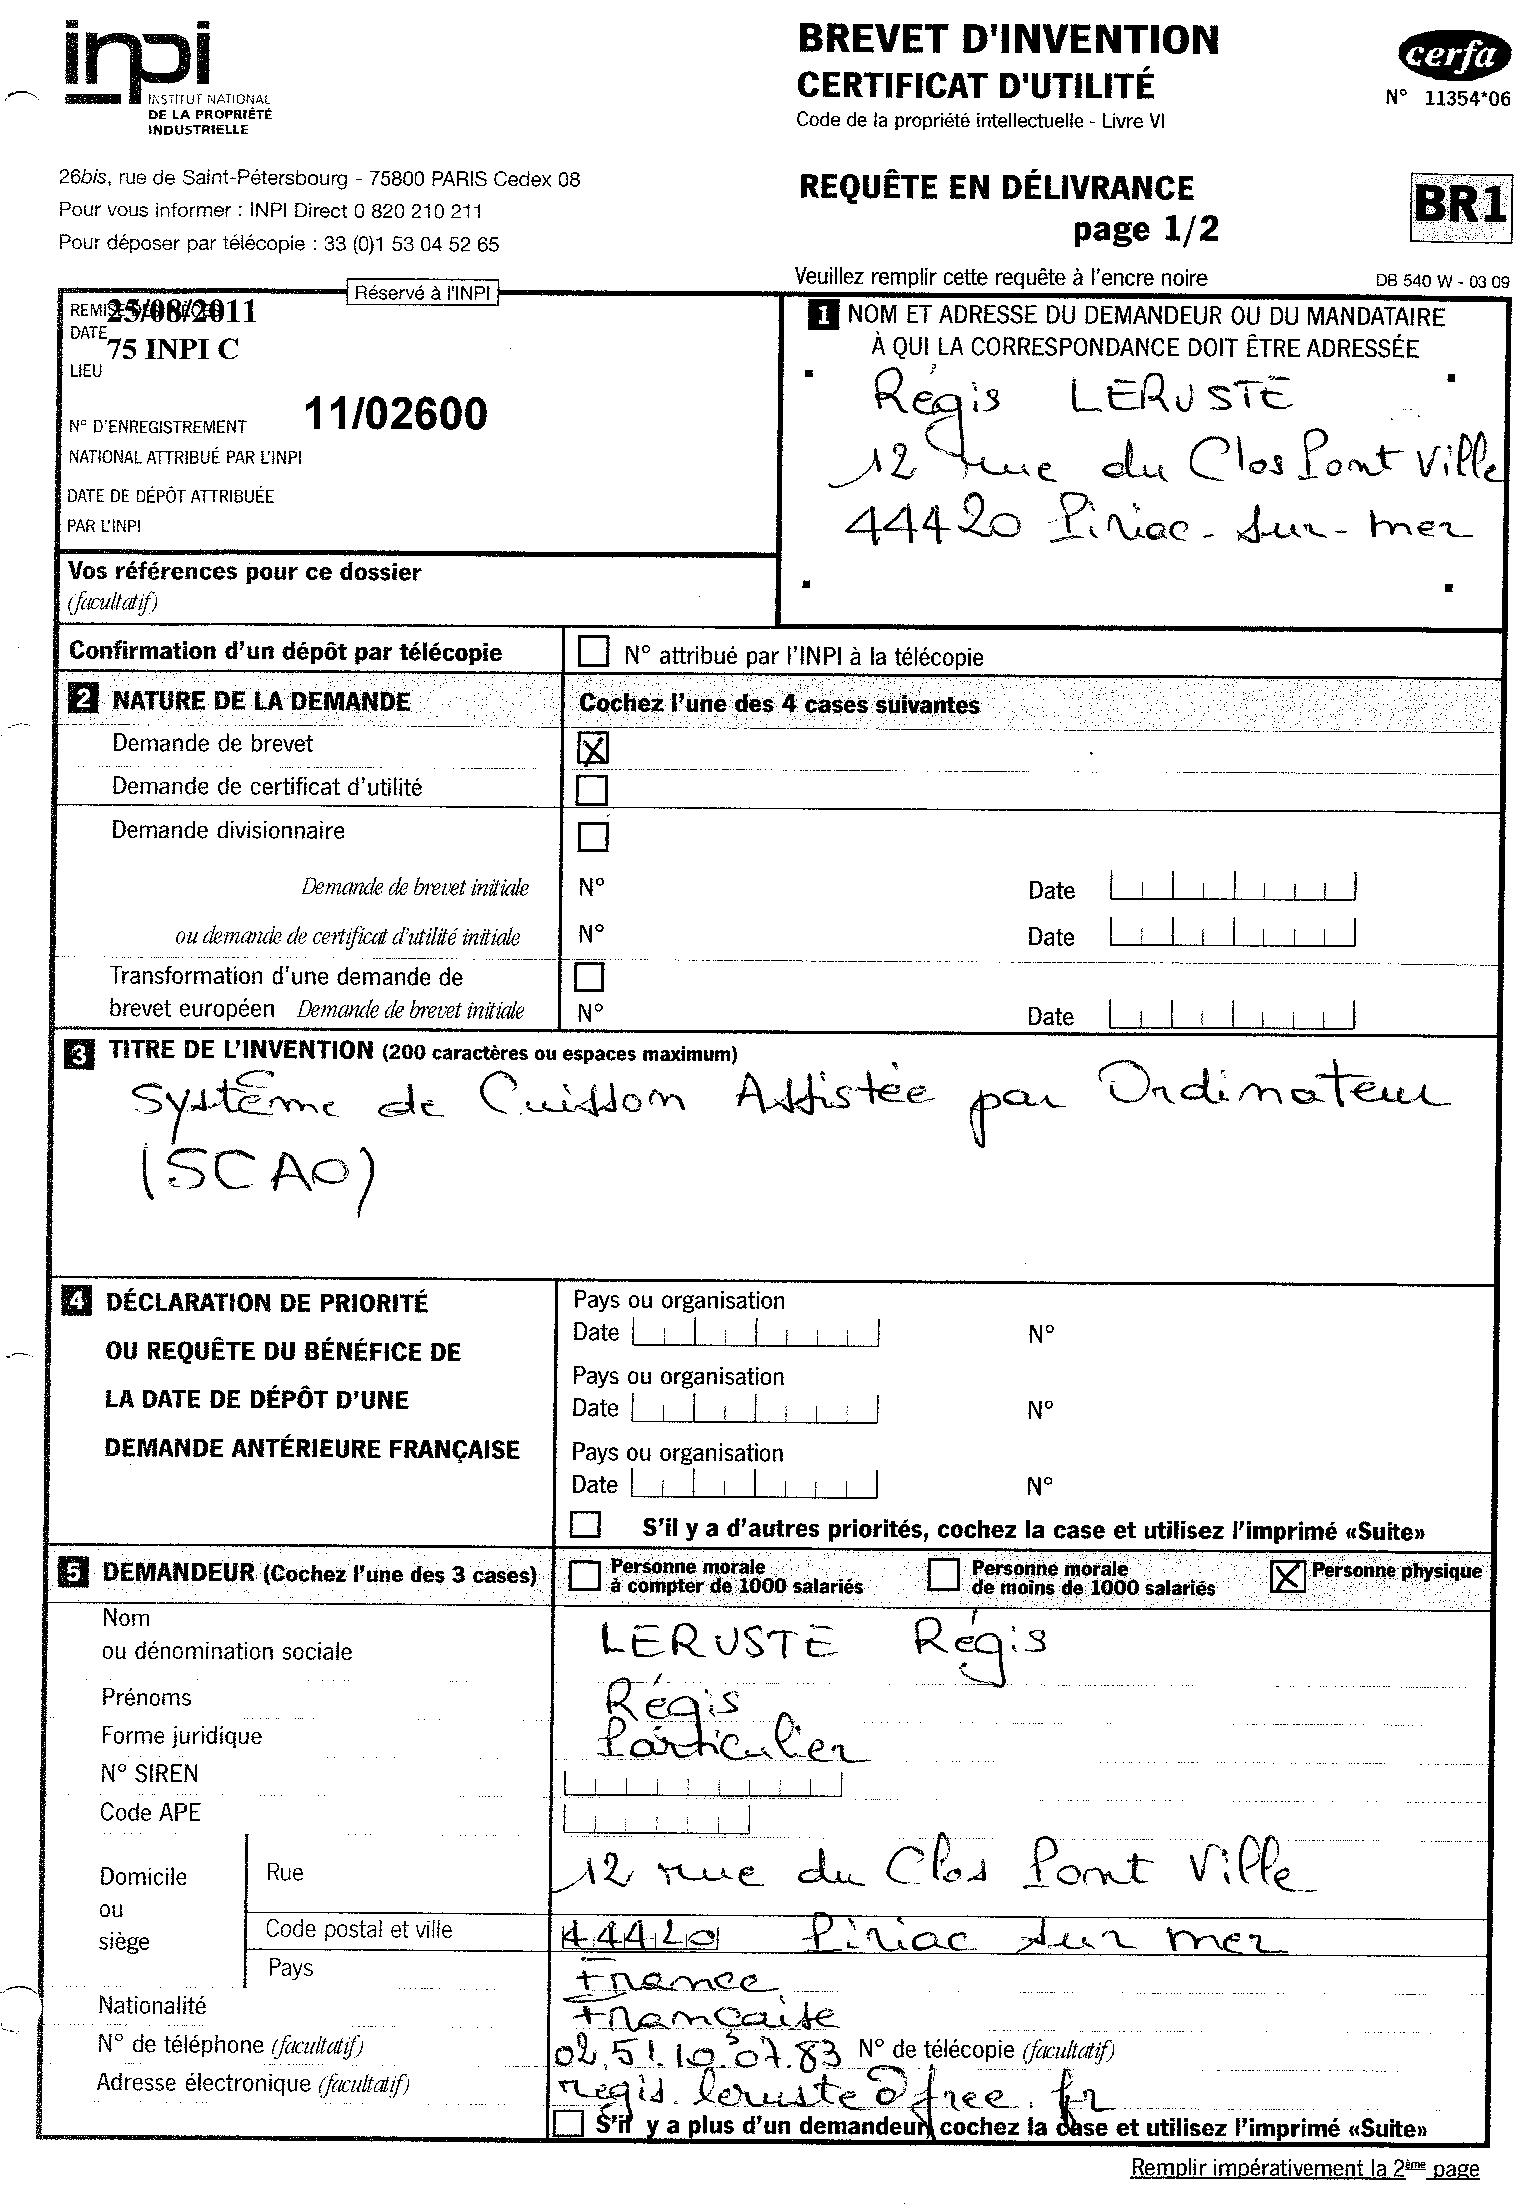 inpi
INSTITUT NATIONAL
DE LA PROPRIÉTÉ
INDUSTRIELLE
BREVET D'INVENTION
CERTIFICAT D'UTILITÉ
Code de la propriété intellectuelle - Livre VI
cerfa
N° 11354*06
26bis, rue de Saint-Pétersbourg - 75800 PARIS Cedex 08
Pour vous informer : INPI Direct 0 820 210 211
Pour déposer par télécopie : 33 (0)1 53 04 52 65
REQUÊTE EN DÉLIVRANCE
page 1/2
BR1
Veuillez remplir cette requête à l'encre noire
DB 540 W - 03 09
Réservé à l'INPI
25/08/2011
DATE
75 INPI C
LIEU
N° D'ENREGISTREMENT 11/02600
NATIONAL ATTRIBUÉ PAR L'INPI
DATE DE DÉPÔT ATTRIBUÉE
PAR L'INPI
1 NOM ET ADRESSE DU DEMANDEUR OU DU MANDATAIRE
À QUI LA CORRESPONDANCE DOIT ÊTRE ADRESSÉE
Régis LERUSTE
12 rue du Clos Pont Ville
44420 Piriac-sur-mer
Vos références pour ce dossier
(facultatif)
Confirmation d'un dépôt par télécopie N° attribué par l'INPI à la télécopie
2 NATURE DE LA DEMANDE Cochez l'une des 4 cases suivantes
Demande de brevet X
Demande de certificat d'utilité
Demande divisionnaire
Demande de brevet initiale N° Date
ou demande de certificat d'utilité initiale N° Date
Transformation d'une demande de
brevet européen Demande de brevet initiale N° Date
3 TITRE DE L'INVENTION (200 caractères ou espaces maximum)
Système de Cuisson Assistée par Ordinateur
(SCAO)
4 DÉCLARATION DE PRIORITÉ
OU REQUÊTE DU BÉNÉFICE DE
LA DATE DE DÉPÔT D'UNE
DEMANDE ANTÉRIEURE FRANÇAISE
Pays ou organisation
Date N°
Pays ou organisation
Date N°
Pays ou organisation
Date N°
S'il y a d'autres priorités, cochez la case et utilisez l'imprimé «Suite»
5 DEMANDEUR (Cochez l'une des 3 cases)
Personne morale
à compter de 1000 salariés
Personne morale
de moins de 1000 salariés
X Personne physique
Nom
ou dénomination sociale LERUSTE Régis
Prénoms Régis
Forme juridique Particulier
N° SIREN
Code APE
Domicile
ou
siège
Rue 12 rue du Clos Pont Ville
Code postal et ville 44420 Piriac sur mer
Pays France
Nationalité Française
N° de téléphone (facultatif) 02.51.10.07.83 N° de télécopie (facultatif)
Adresse électronique (facultatif) regis.leruste@free.fr
S'il y a plus d'un demandeur, cochez la case et utilisez l'imprimé «Suite»
Remplir impérativement la 2ème page